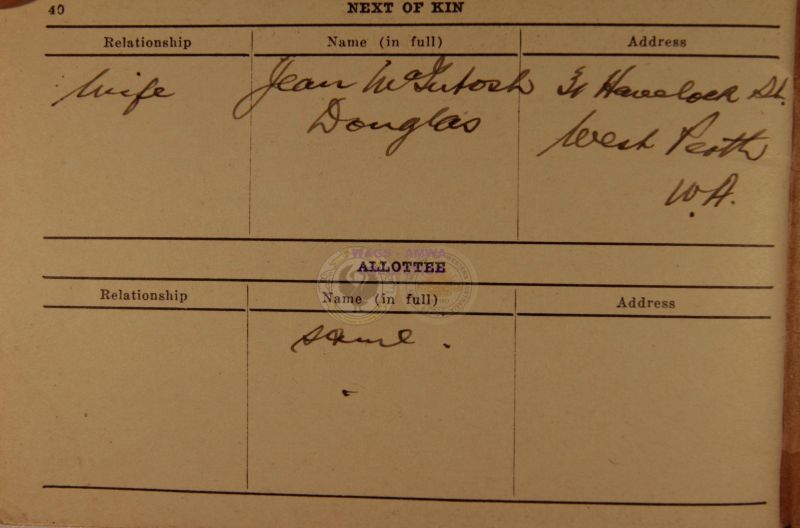 40
NEXT OF KIN
Relationship Name (in full) Address
Wife Jean McIntosh Havelock St.
Douglas West Perth
W.A.
WAGS AMWA
ALLOTTEE
Relationship Name (in full) Address
same.